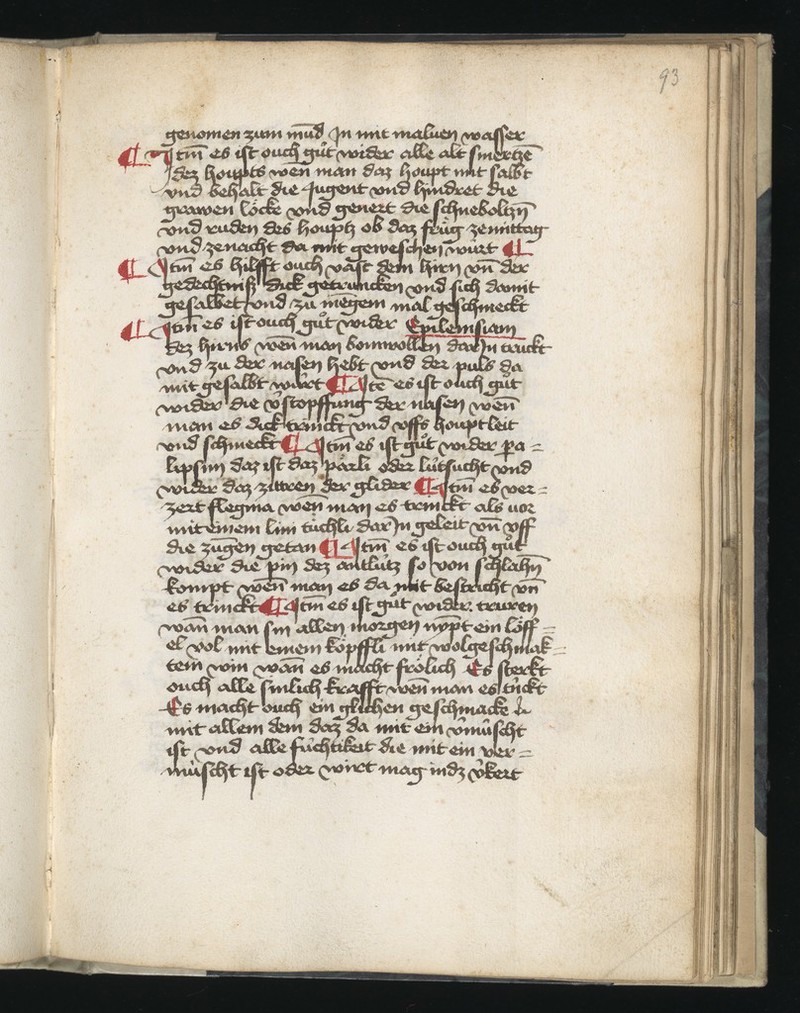 93
genomen zum mu̅d In mit maluen wasser
¶ Itm̅ es ist ouch gůt wider alle alt smertze̅
dez houpts wen̅ man daz houpt mit salbt
vnd behalt die Jugent vnd hindret die
grawen löcke vnd genert die schneboltzn̅
vnd ruden des houptz ob daz frůg zemittag
vnd zenacht da mit geweschen würt ¶
¶ Itm̅ es hilfft ouch vast dem hirn vn̅ der
gedechtniß dick getruncken vnd sich damit
gesalbet vnd zu mengem mal geschmeckt
¶ Itm̅ es ist ouch gůt wider Epilemsiam
dez hirns wen̅ man bomwollen dar In truckt
vnd zu der nasen hebt vnd der puls da
mit gesalbt würt ¶ Ite̅ es ist ouch gůt
wider die v̓stopffung der nasen wen̅
man es dick trinckt vnd vffs houpt leit
vnd schmeckt ¶ Itm̅ es ist gůt wider pa=
lipsim daz ist daz pärli oder lütsucht vnd
wider daz zittren der glider ¶ Itm̅ es ver=
zert flegma wen̅ man es trinckt als vor
mit einem lini tüchli dar In geleit vn̅ vff
die zungen getan ¶ Itm̅ es ist ouch gůt
wider die pin dez antlütz so von schlahn̅
kompt wen̅ man es da mit bestricht vn̅
es trinckt ¶ Itm̅ es ist gůt wider truren
wan̅ man sin allen morgen nypt ein löff=
el vol mit einem köpffli mit wolgeschmak=
tem win wan̅ es macht frölich Es sterkt
ouch alle sinlich krafft wen̅ man es tri̅ckt
Es macht ouch ein glichen geschmacke
mit allem dem daz da mit ein v̓müscht
ist vnd alle füchtikeit die mit ein ver=
müscht ist oder wirt mag indz v̓kert